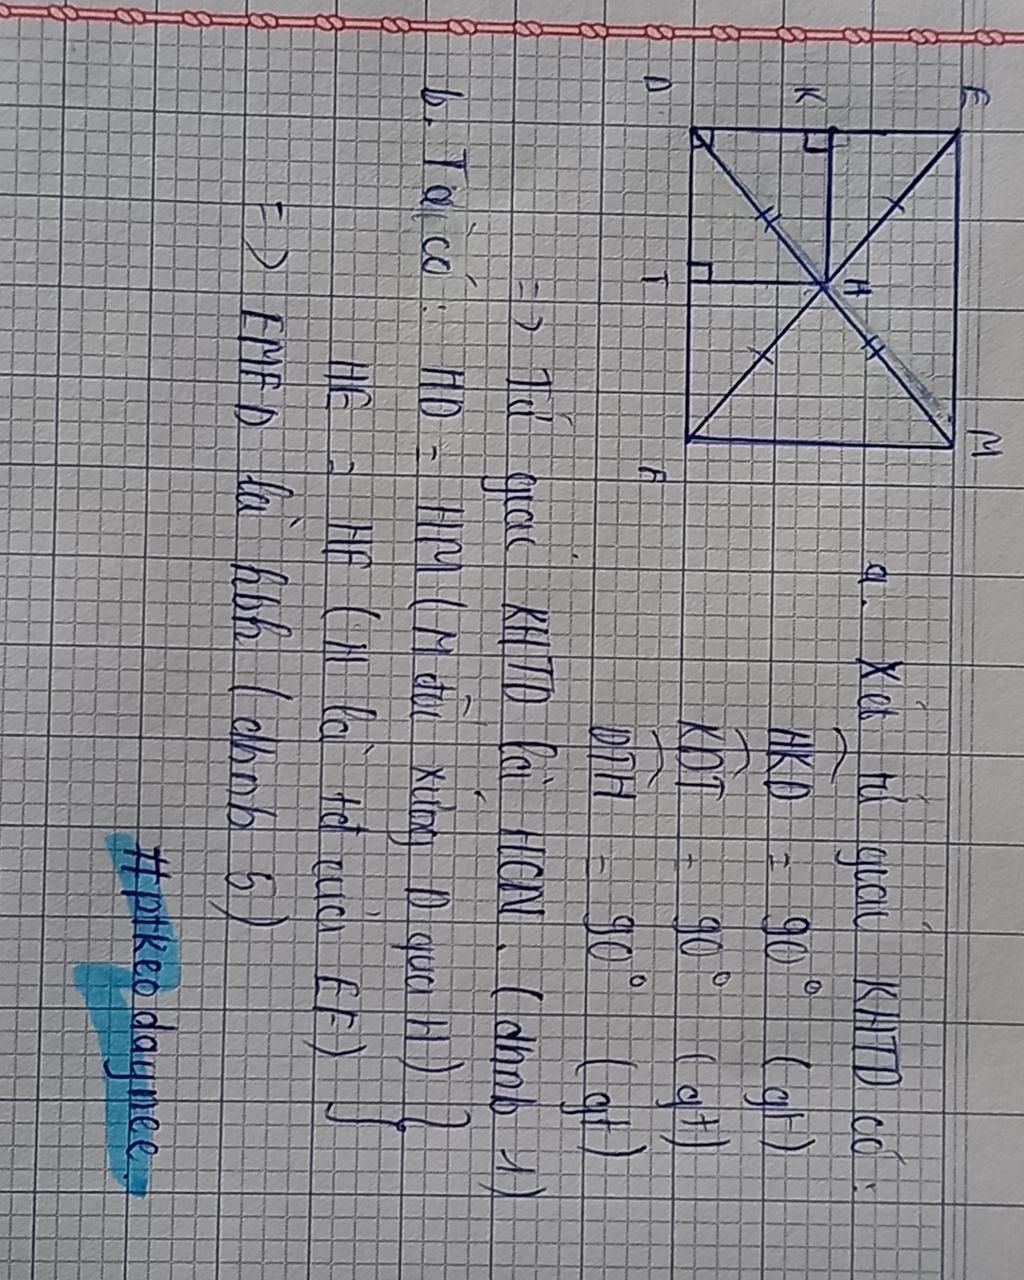 E
M
K
H
D
T
F
a. Xét tứ giác KHTD có:
HKD = 90° (gt)
KDT = 90° (gt)
DTH = 90° (gt)
=> Tứ giác KHTD là HCN. (dhnb 1)
b. Ta có: HD = HM (M đối xứng D qua H)
HE = HF (H là tđ của EF)
=> EMFD là hbh (dhnb 5)
#ptkeodaymee.